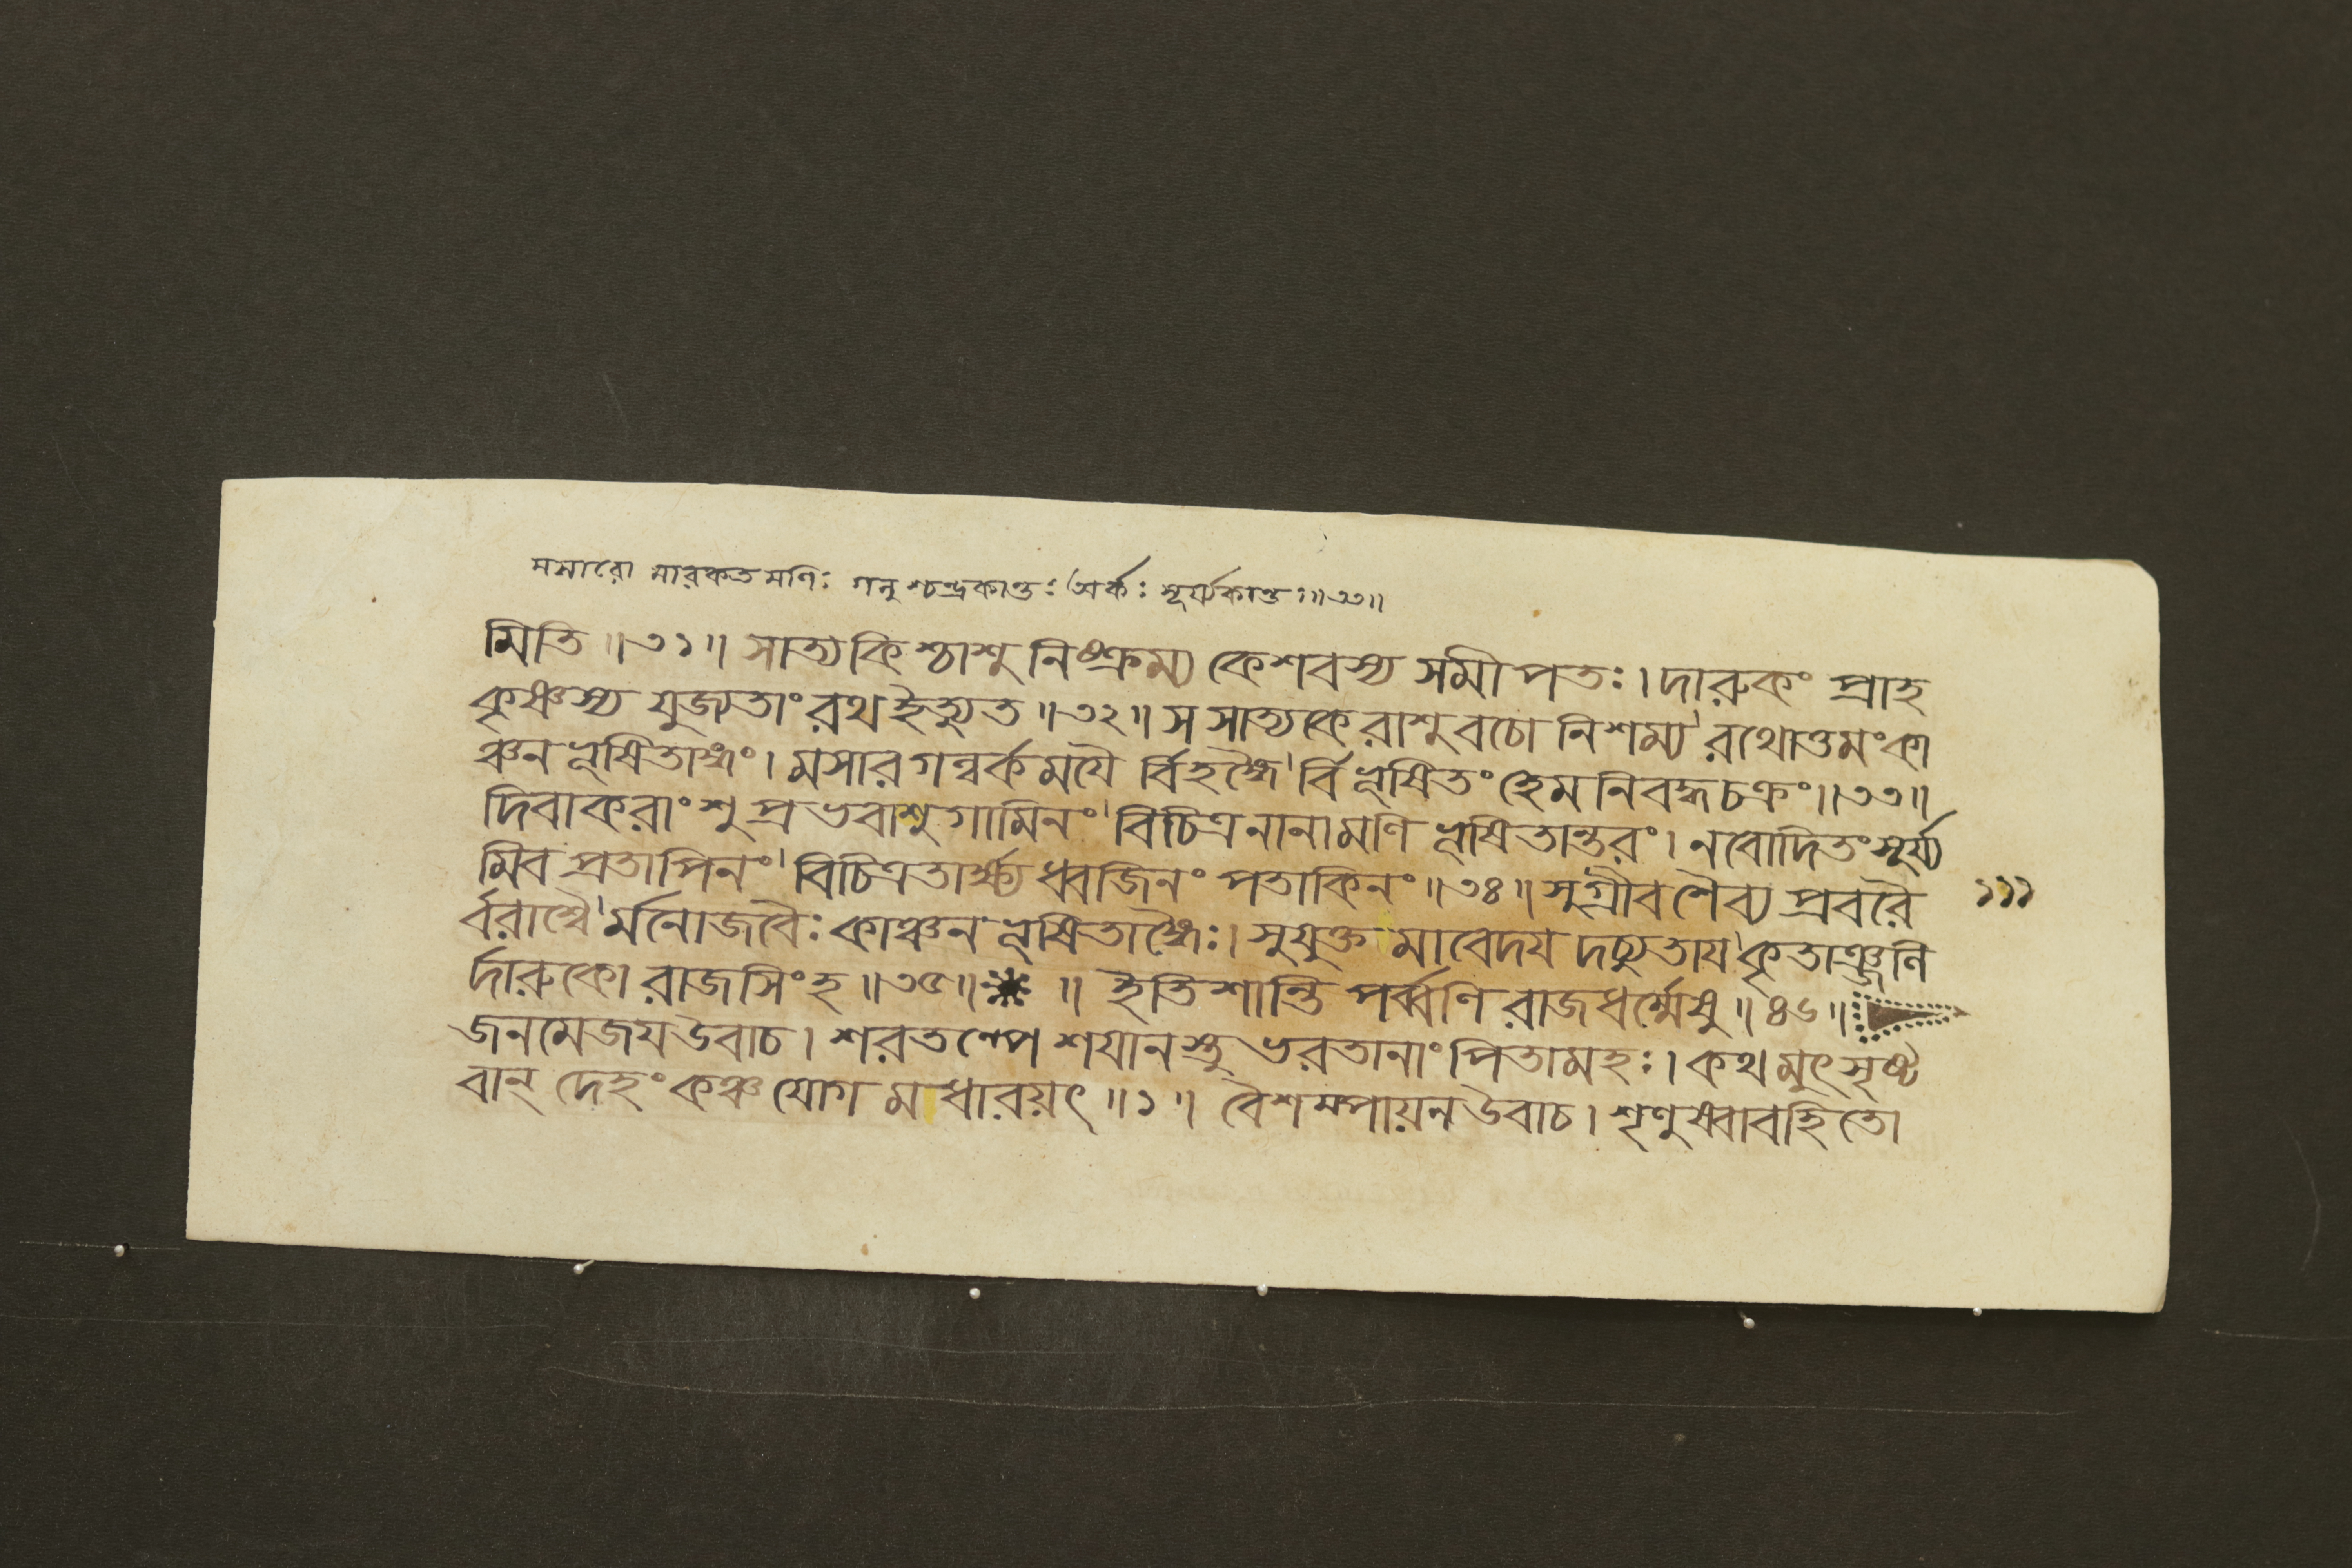 মসারো মারকতমণিঃ গলুশ্চন্দ্রকান্তঃ অর্কঃ সূর্য্যকান্তঃ॥৩৩॥
মিতি॥৩১॥ সাত্যকিশ্চাশু নিষ্ক্রম্য কেশবস্য সমীপতঃ। দারুকং প্রাহ
কৃষ্ণস্য যুজ্যতাং রথ ইত্যুত॥৩২॥ স সাত্যকেরাশু বচো নিশম্য রথোত্তমং কা
ঞ্চনভূষিতাঙ্গং। মসারগল্বর্কময়ৈ র্বিভঙ্গৈ র্বিভূষিতং হেমনিবদ্ধচক্রং॥৩৩॥
দিবাকরাংশুপ্রভবাশুগামিনং বিচিত্রনানামণিভূষিতান্তরং। নবোদিতং সূর্য্য
মিব প্রতাপিনং বিচিত্রতার্ক্ষ্যধ্বজিনং পতাকিনং॥৩৪॥ সুগ্রীবশৈব্যপ্রবরৈ
র্বরাশ্বৈ র্মনোজবৈঃ কাঞ্চনভূষিতাঙ্গৈঃ। সুযুক্তমাবেদয দচ্যুতায কৃতাঞ্জলি
র্দারুকো রাজসিংহ॥৩৫॥ ॥ ইতি শান্তিপর্ব্বণি রাজধর্ম্মেষু॥৪৬॥
জনমেজয উবাচ। শরতল্পে শযানস্তু ভরতানাং পিতামহঃ। কথমুৎসৃষ্ট
বান্ দেহং কঞ্চ যোগমধারয়ৎ॥১॥ বৈশম্পায়ন উবাচ। শৃণুষ্বাবহিতো
১১১